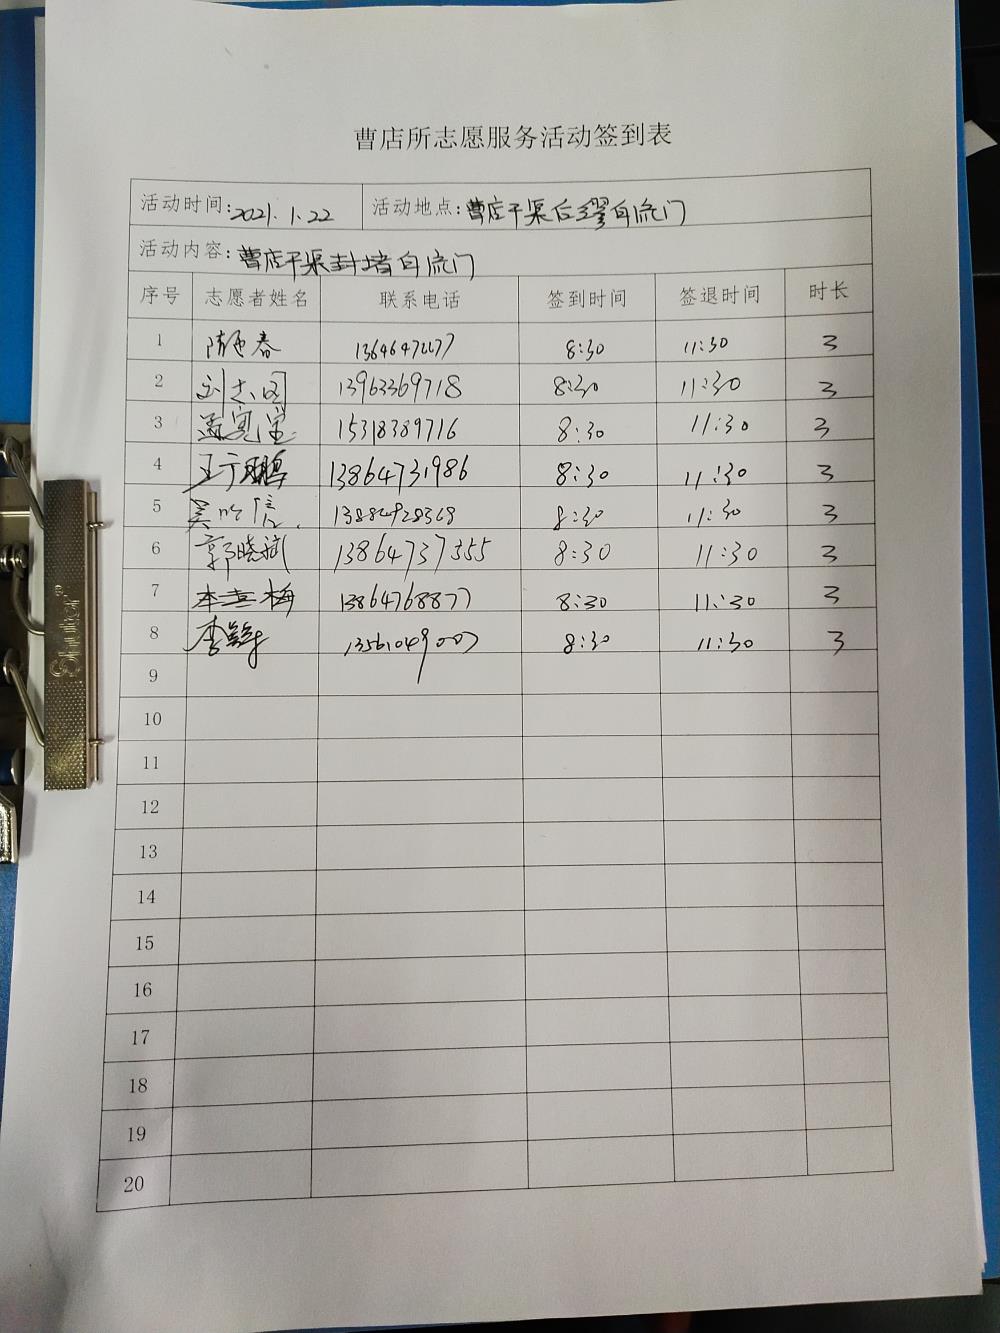 曹店所志愿服务活动签到表
活动时间:2021.1.22 活动地点:曹店干渠后缪自流门
活动内容:曹店干渠封堵自流门
序号 志愿者姓名 联系电话 签到时间 签退时间 时长
1 春 8:30 11:30 3
2 刘志国 13963369718 8:30 11:30 3
3 孟宪宝 15318389716 8:30 11:30 3
4 王宁鹏 13864731986 8:30 11:30 3
5 吴 13884928368 8:30 11:30 3
6 郭晓斌 13864737355 8:30 11:30 3
7 梅 13864768877 8:30 11:30 3
8 李 13561049007 8:30 11:30 3
9
10
11
12
13
14
15
16
17
18
19
20
Shuter